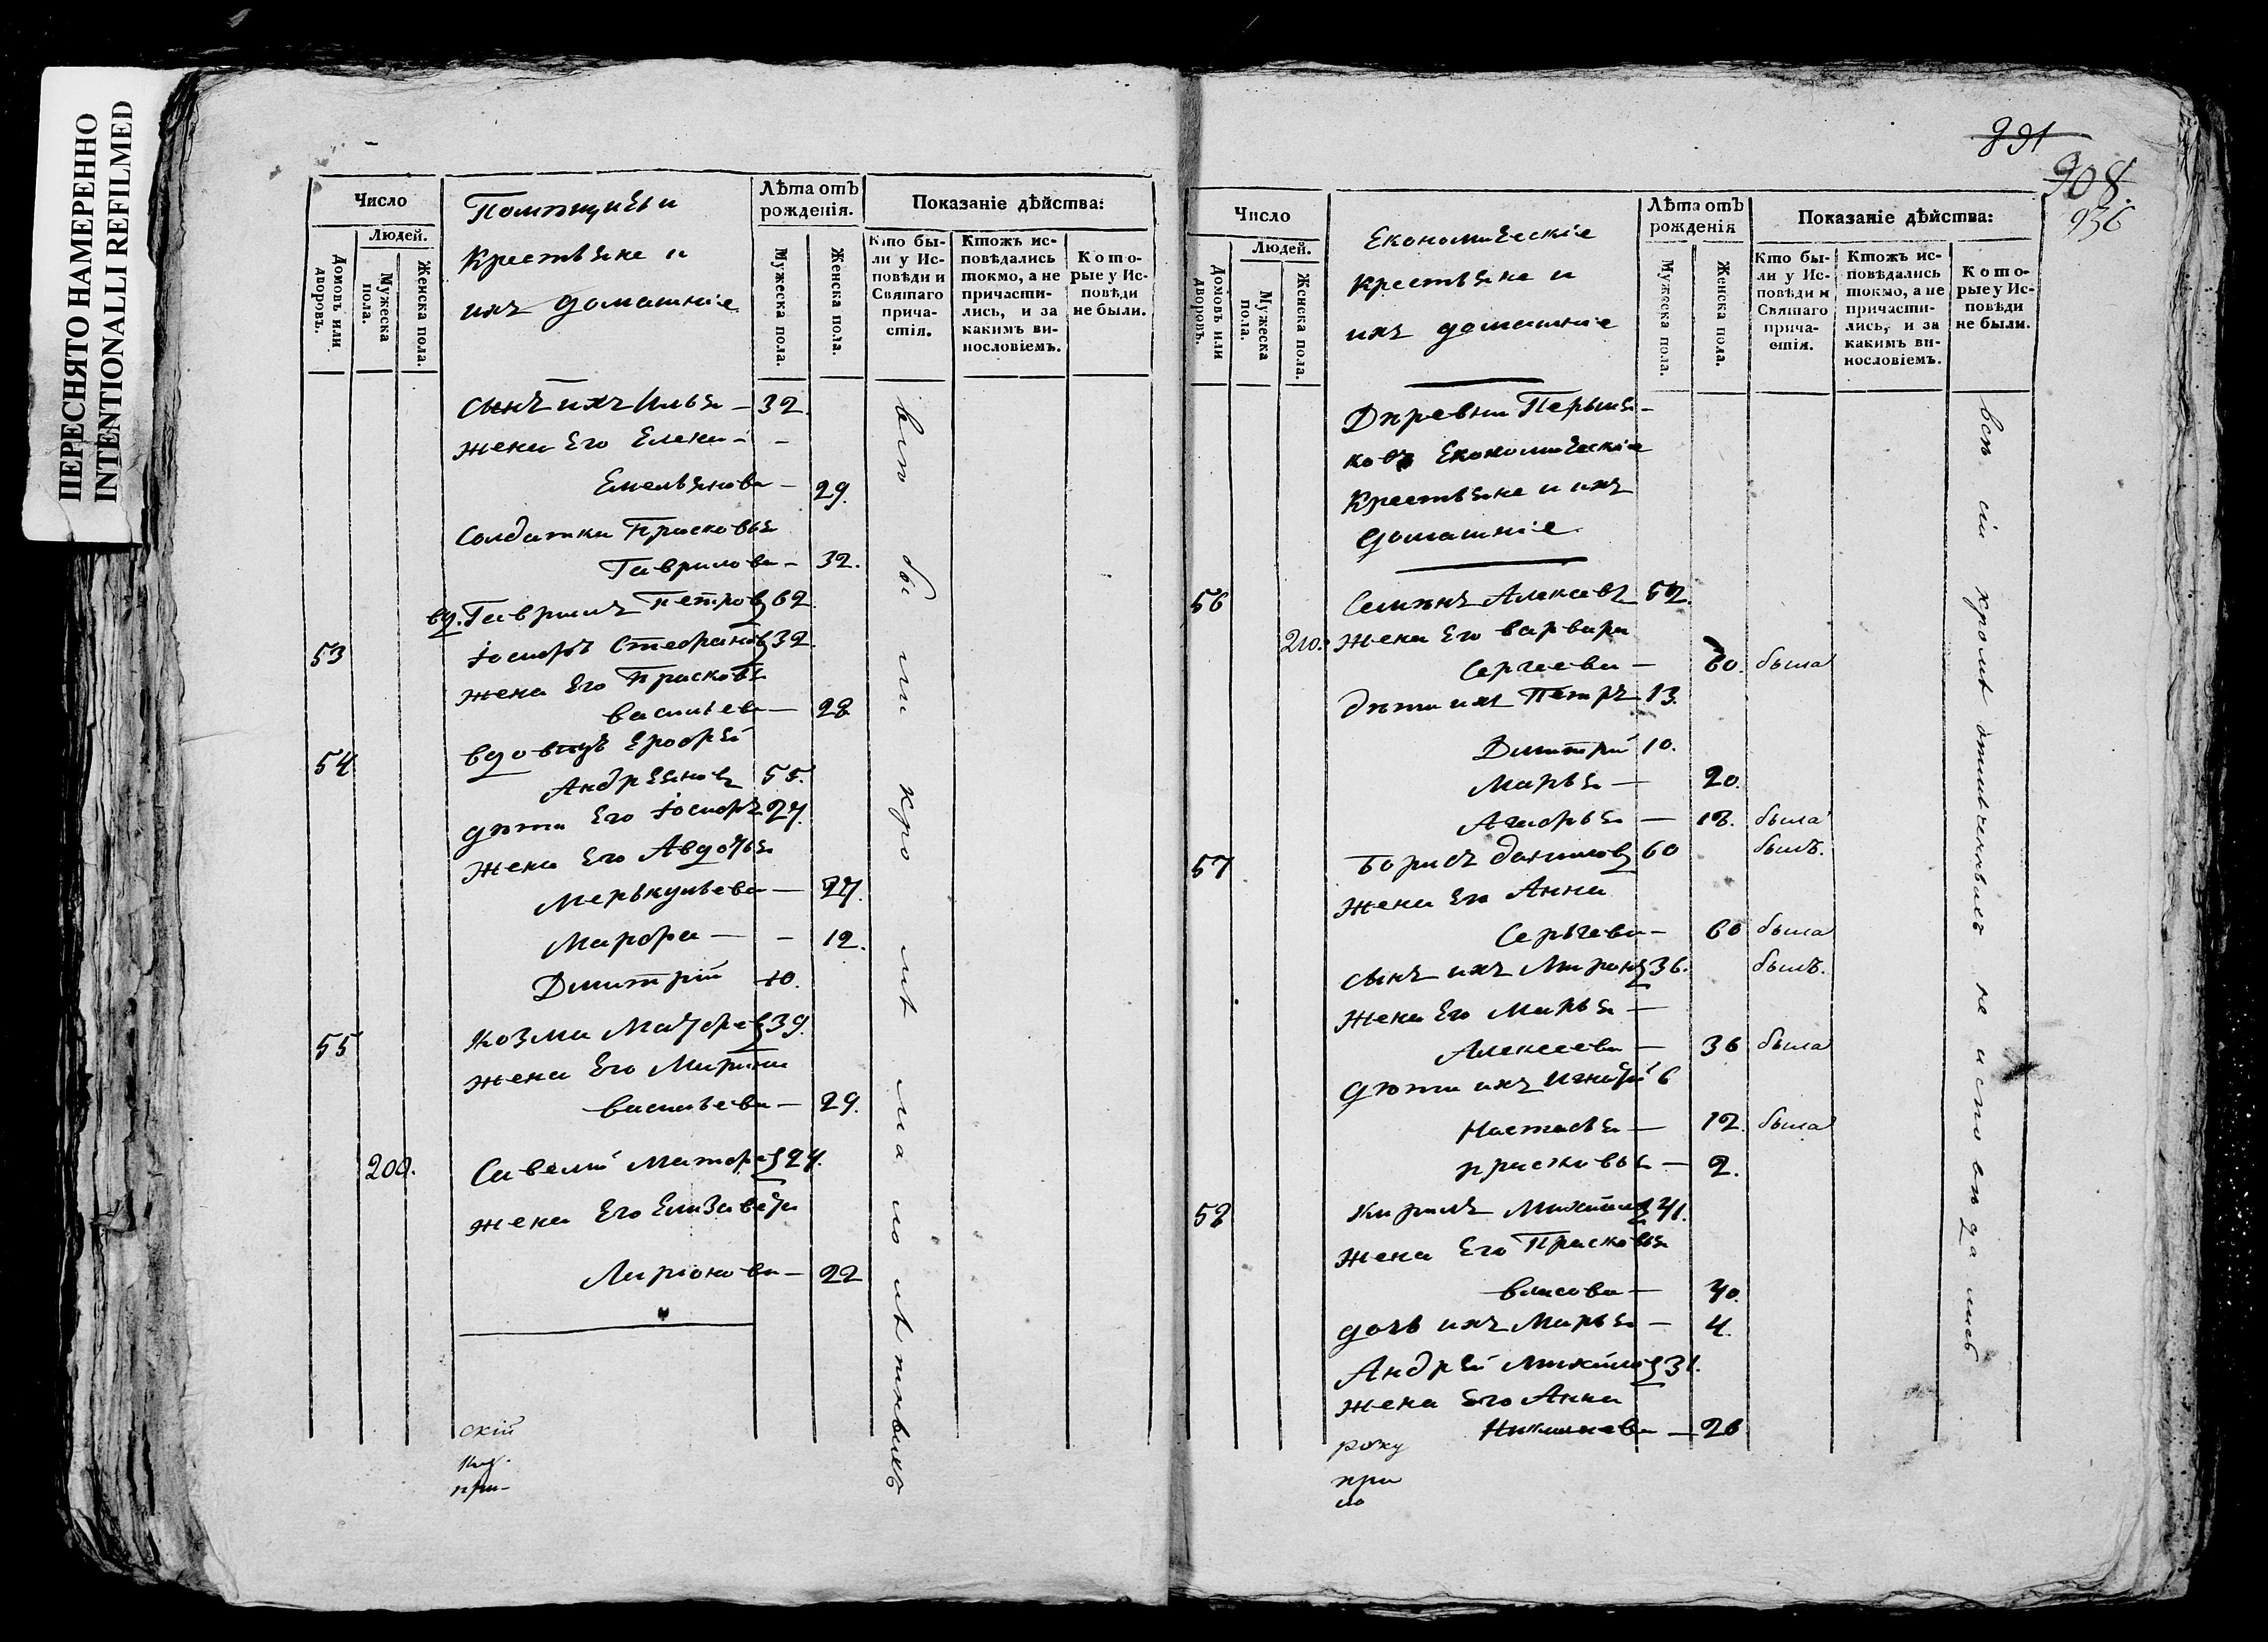 ПЕРЕСНЯТО НАМЕРЕННО
INTENTIONALLI REFILMED
Число
Людей.
Домовъ или дворовъ.
Мужеска пола.
Женска пола.
Помѣщичьи
крестьяне и
ихъ домашніе
Лѣта отъ рожденія.
Мужеска пола.
Женска пола.
Показаніе дѣйства:
Кто бы-
ли у Ис-
повѣди и
Святаго
прича-
стія.
Ктожъ ис-
повѣдались
токмо, а не
причасти-
лись, и за
какимъ ви-
нословіемъ.
Кото-
рые у Ис-
повѣди
не были.
сынъ ихъ Илья – 32.
жена Его Елена – –
Емельянова – 29.
Солдатка Прасковья
Гаврилова – 32.
вд. Гаврилъ Петровъ 62.
53 Іосифъ Стефановъ 32.
жена Его Прасковья
васильева – 28
54 вдовецъ Ерофей
Андреяновъ 55.
дѣти Его Іосифъ 27.
жена Его Авдотья
Меркульева – 27.
Марфа – – 12.
Дмитрій 10.
55 Козма Матфеевъ 39.
жена Его Марина
васильева – 29.
200. Савелій Матфеевъ 24.
жена Его Елизавета
Ларіонова – 22
всѣ были кромѣ малолѣтныхъ
скій
при-
891
908.
936
Число
Людей.
Домовъ или дворовъ.
Мужеска пола.
Женска пола.
Економическіе
крестьяне и
ихъ домашніе
Лѣта отъ рожденія
Мужеска пола.
Женска пола.
Показаніе дѣйства:
Кто бы-
ли у Ис-
повѣди и
Святаго
прича-
стія.
Ктожъ ис-
повѣдались
токмо, а не
причасти-
лись, и за
какимъ ви-
нословіемъ.
Кото-
рые у Ис-
повѣди
не были.
Деревни Першя-
ковъ Економическіе
Крестьяне и ихъ
домашніе
56 Семенъ Алексевъ 52.
210. жена Его варвара
Сергеева – 60. была
дѣти ихъ Петръ 13.
Дмитрій 10.
Марья – 20.
Агафья – 18. была
57 Борисъ даниловъ 60 былъ.
жена Его Анна
Серьгева – 60 была
сынъ ихъ Миронъ 36. былъ.
жена Его Марья –
Алексеева – 36 была
дѣти ихъ Игнатій 6
Настасья – 12. была
прасковья – 2.
58 Кирилъ Михайловъ 41.
жена Его Прасковья
власова – 40.
дочь ихъ Марья – 4.
Андрей Михайловъ 31.
жена Его Анна
– 26
всѣ сіи кромѣ отмѣченныхъ не исповѣдались
року
при
но